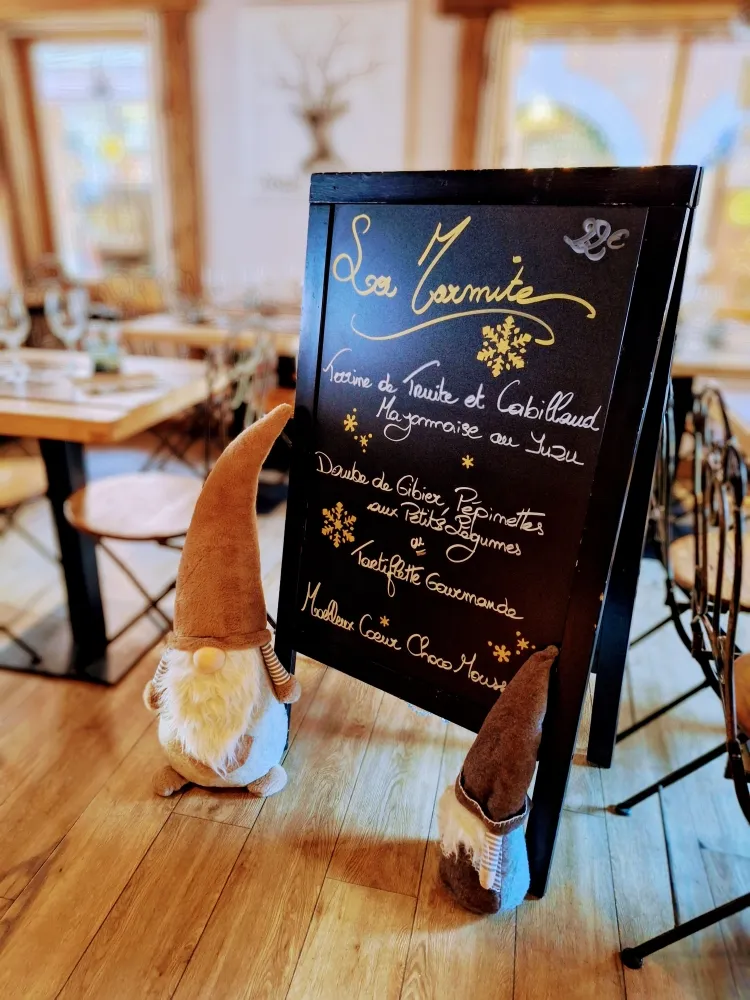 La Marmite
22€
Terrine de Truite et Cabillaud
Mayonnaise au Yuzu
Daube de Gibier, Pépinettes
aux Petits Légumes
ou
Tartiflette Gourmande
Moelleux Coeur Choco Mousse